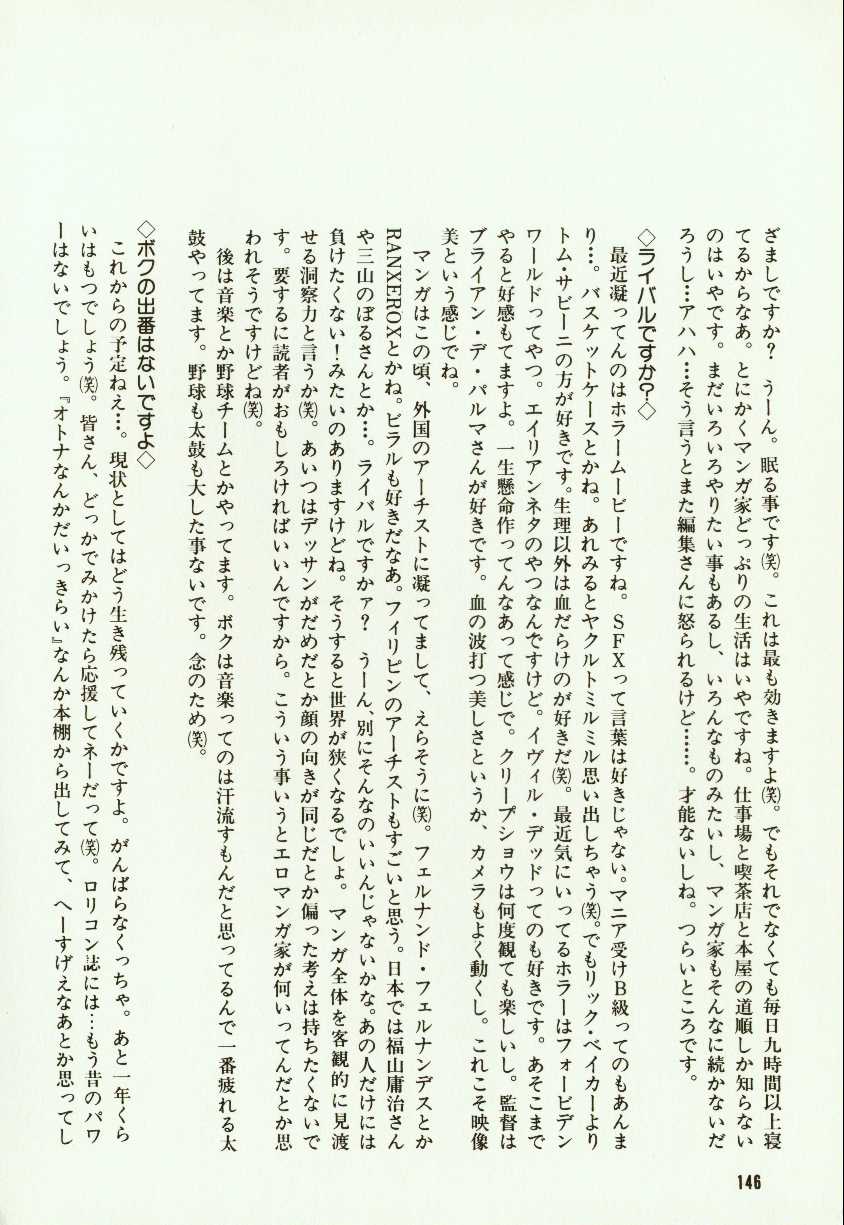 ざましですか？　うーん。眠る事です㈹。これは最も効きますよ(笑)。でもそれでなくても毎日九時間以上寝
てるからなあ。とにかくマンガ家どっぷりの生活はいやですね。仕事場と喫茶店と本屋の道順しか知らない
のはいやです。まだいろいろやりたい事もあるし、いろんなものみたいし、マンガ家もそんなに続かないだ
ろうし…アハハ…そう言うとまた編集さんに怒られるけど………。才能ないしね。つらいところです。
◇ライバルですか？◇
　最近凝ってんのはホラームービーですね。ＳＦＸって言葉は好きじゃない。マニア受けＢ級ってのもあんま
り…。バスケットケースとかね。あれみるとヤクルトミルミル思い出しちゃう(笑)。でもリック・ベイカーより
トム・サビーニの方が好きです。生理以外は血だらけのが好きだ(笑)。最近気にいってるホラーはフォービデン
ワールドってやつ。エイリアンネタのやつなんですけど。イヴィル・デッドってのも好きです。あそこまで
やると好感もてますよ。一生懸命作ってんなあって感じで。クリープショウは何度観ても楽しいし。監督は
ブライアン・デ・パルマさんが好きです。血の波打つ美しさというか、カメラもよく動くし。これこそ映像
美という感じでね。
　マンガはこの頃、外国のアーチストに凝ってまして、えらそうに(笑)。フェルナンド・フェルナンデスとか
RANXEROXとかね。ビラルも好きだなあ。フィリピンのアーチストもすごいと思う。日本では福山庸治さん
や三山のぼるさんとか…。ライバルですかァ？　うーん、別にそんなのいいんじゃないかな。あの人だけには
負けたくない！みたいのありますけどね。そうすると世界が狭くなるでしょ。マンガ全体を客観的に見渡
せる洞察力と言うか(笑)。あいつはデッサンがだめだとか顔の向きが同じだとか偏った考えは持ちたくないで
す。要するに読者がおもしろければいいんですから。こういう事いうとエロマンガ家が何いってんだとか思
われそうですけどね(笑)。
　後は音楽とか野球チームとかやってます。ボクは音楽ってのは汗流すもんだと思ってるんで一番疲れる太
鼓やってます。野球も太鼓も大した事ないです。念のため(笑)。
◇ボクの出番はないですよ◇
　これからの予定ねえ…。現状としてはどう生き残っていくかですよ。がんばらなくっちゃ。あと一年くら
いはもつでしょう(笑)。皆さん、どっかでみかけたら応援してネーだって(笑)。ロリコン誌には…もう昔のパワ
ーはないでしょう。『オトナなんかだいっきらい』なんか本棚から出してみて、へーすげえなあとか思ってし
146